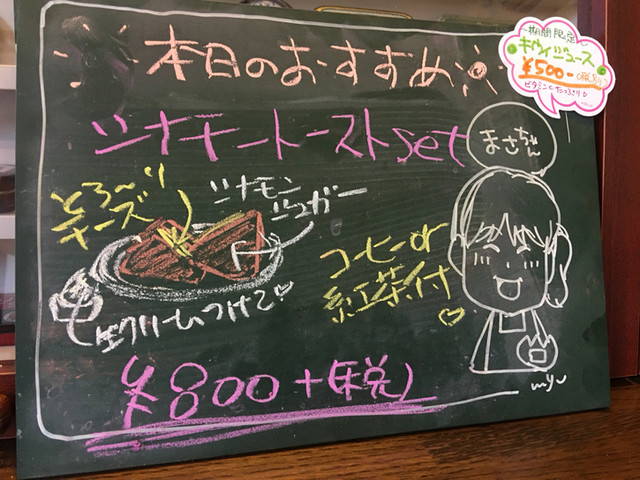 本日のおすすめ
シナモントーストset
まさちゃん
とろ〜り
チーズ
シナモン
シュガー
生クリームつけて♡
コーヒーor
紅茶付
♡
¥800+(税)
myu
期間限定
キウイジュース
¥500-(税込)
ビタミンCたっぷり♡